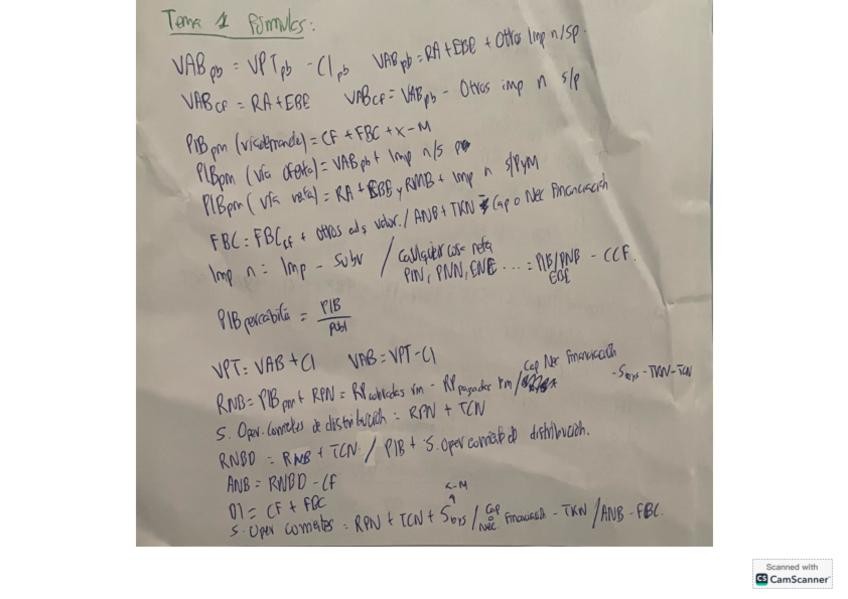 Tema 1 Formulas:
VABpb = VPTpb - CIpb   VABpb = RA + EBE + Otros Imp n/sp.
VABCF = RA + EBE   VABCF = VABpb - Otros imp n s/p
PIBpm (vía demanda) = CF + FBC + X - M
PIBpm (vía oferta) = VABpb + Imp n/s p
PIBpm (vía renta) = RA + EBE y RMB + Imp n s/PyM
FBC = FBCCF + otros obj valor. / ANB + TKN - Cap o Nec Financiación
Imp n = Imp - Subv / Cualquier cosa neta
PIN, PNN, ENE ... = PIB/PNB - CCF.
EBE
PIB percapita = PIB
Pobl
VPT = VAB + CI   VAB = VPT - CI
Cap Nec Financiación
RNB = PIBpm + RPN = RP cobradas rm - RP pagadas rm /   - SByS - TKN - TCN
S. Oper. Corrientes de distribución = RPN + TCN
RNBD = RNB + TCN / PIB + S. Oper corrient de distribución.
ANB = RNBD - CF
X-M
DI = CF + FBC
S. Oper corrientes = RPN + TCN + SByS / Cap o Nec Financiación - TKN / ANB - FBC.
Scanned with
CS CamScanner